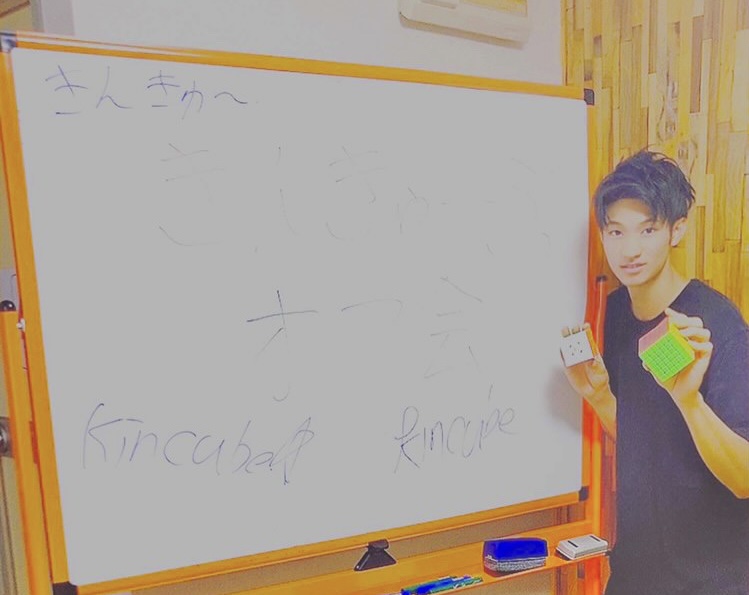 きんきゅ〜
きんきゅーぶ
オフ会
Kincube kincube